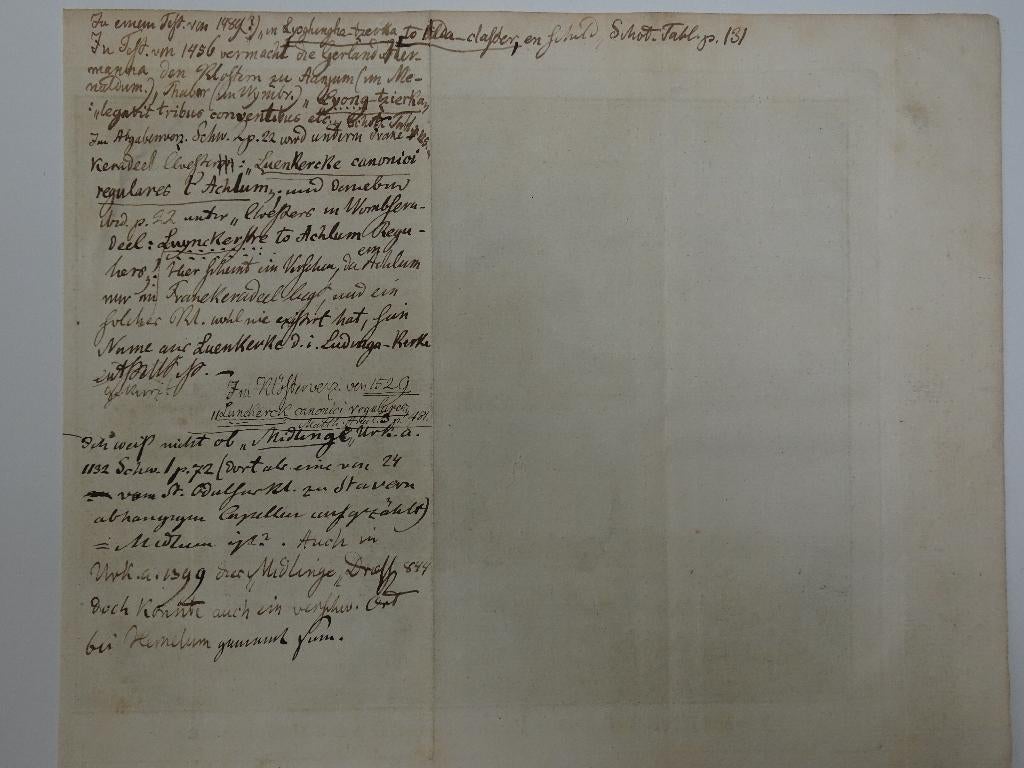 In einem Test. von 1489(?) „in Lyoghingha-tzerka to Alda-claster, en schild, Schot. Tabl. p. 131
In Test. von 1456 vermacht die Gerlandt Her-
manna, den Klostern zu Aanjum (in Me-
naldum.), Thabor (in Wymbr.) „Lyong-tzerka,
„legavit tribus conventibus etc. Schot.
Im Ausgabenverz. Schw. 2 p. 22 wird unterm
keradeel Cloester: „Luenkercke canonici
regulares t' Achlum, und daneben
ibid. p. 22 unter „Cloesters in Wombsera-
deel: Luynckerfre to Achlum Regu-
liers! Hier scheint ein Versehen, da Achlum
nur in Franekeradeel liegt und ein
solches Kl. wohl nie existirt hat, sein
Name aus Luenkerke d. i. Ludinga-Kerke
entstellt sp.
Im Klösterverz. von 1529
„Lunckerck canonici regulares
Ich weiß nicht ob „Midlinge, Urk. a.
1132 Schw. 1 p. 72 (dort als eine von 24
vom St. Odulfuskl. zu Stavern
abhängigen Capellen aufgezählt)
= Midlum ist? . Auch in
Urk. a. 1399 das Midlinge, Dross 844
doch könnte auch ein verschw. Ort
bei Hemelum gemeint sein.